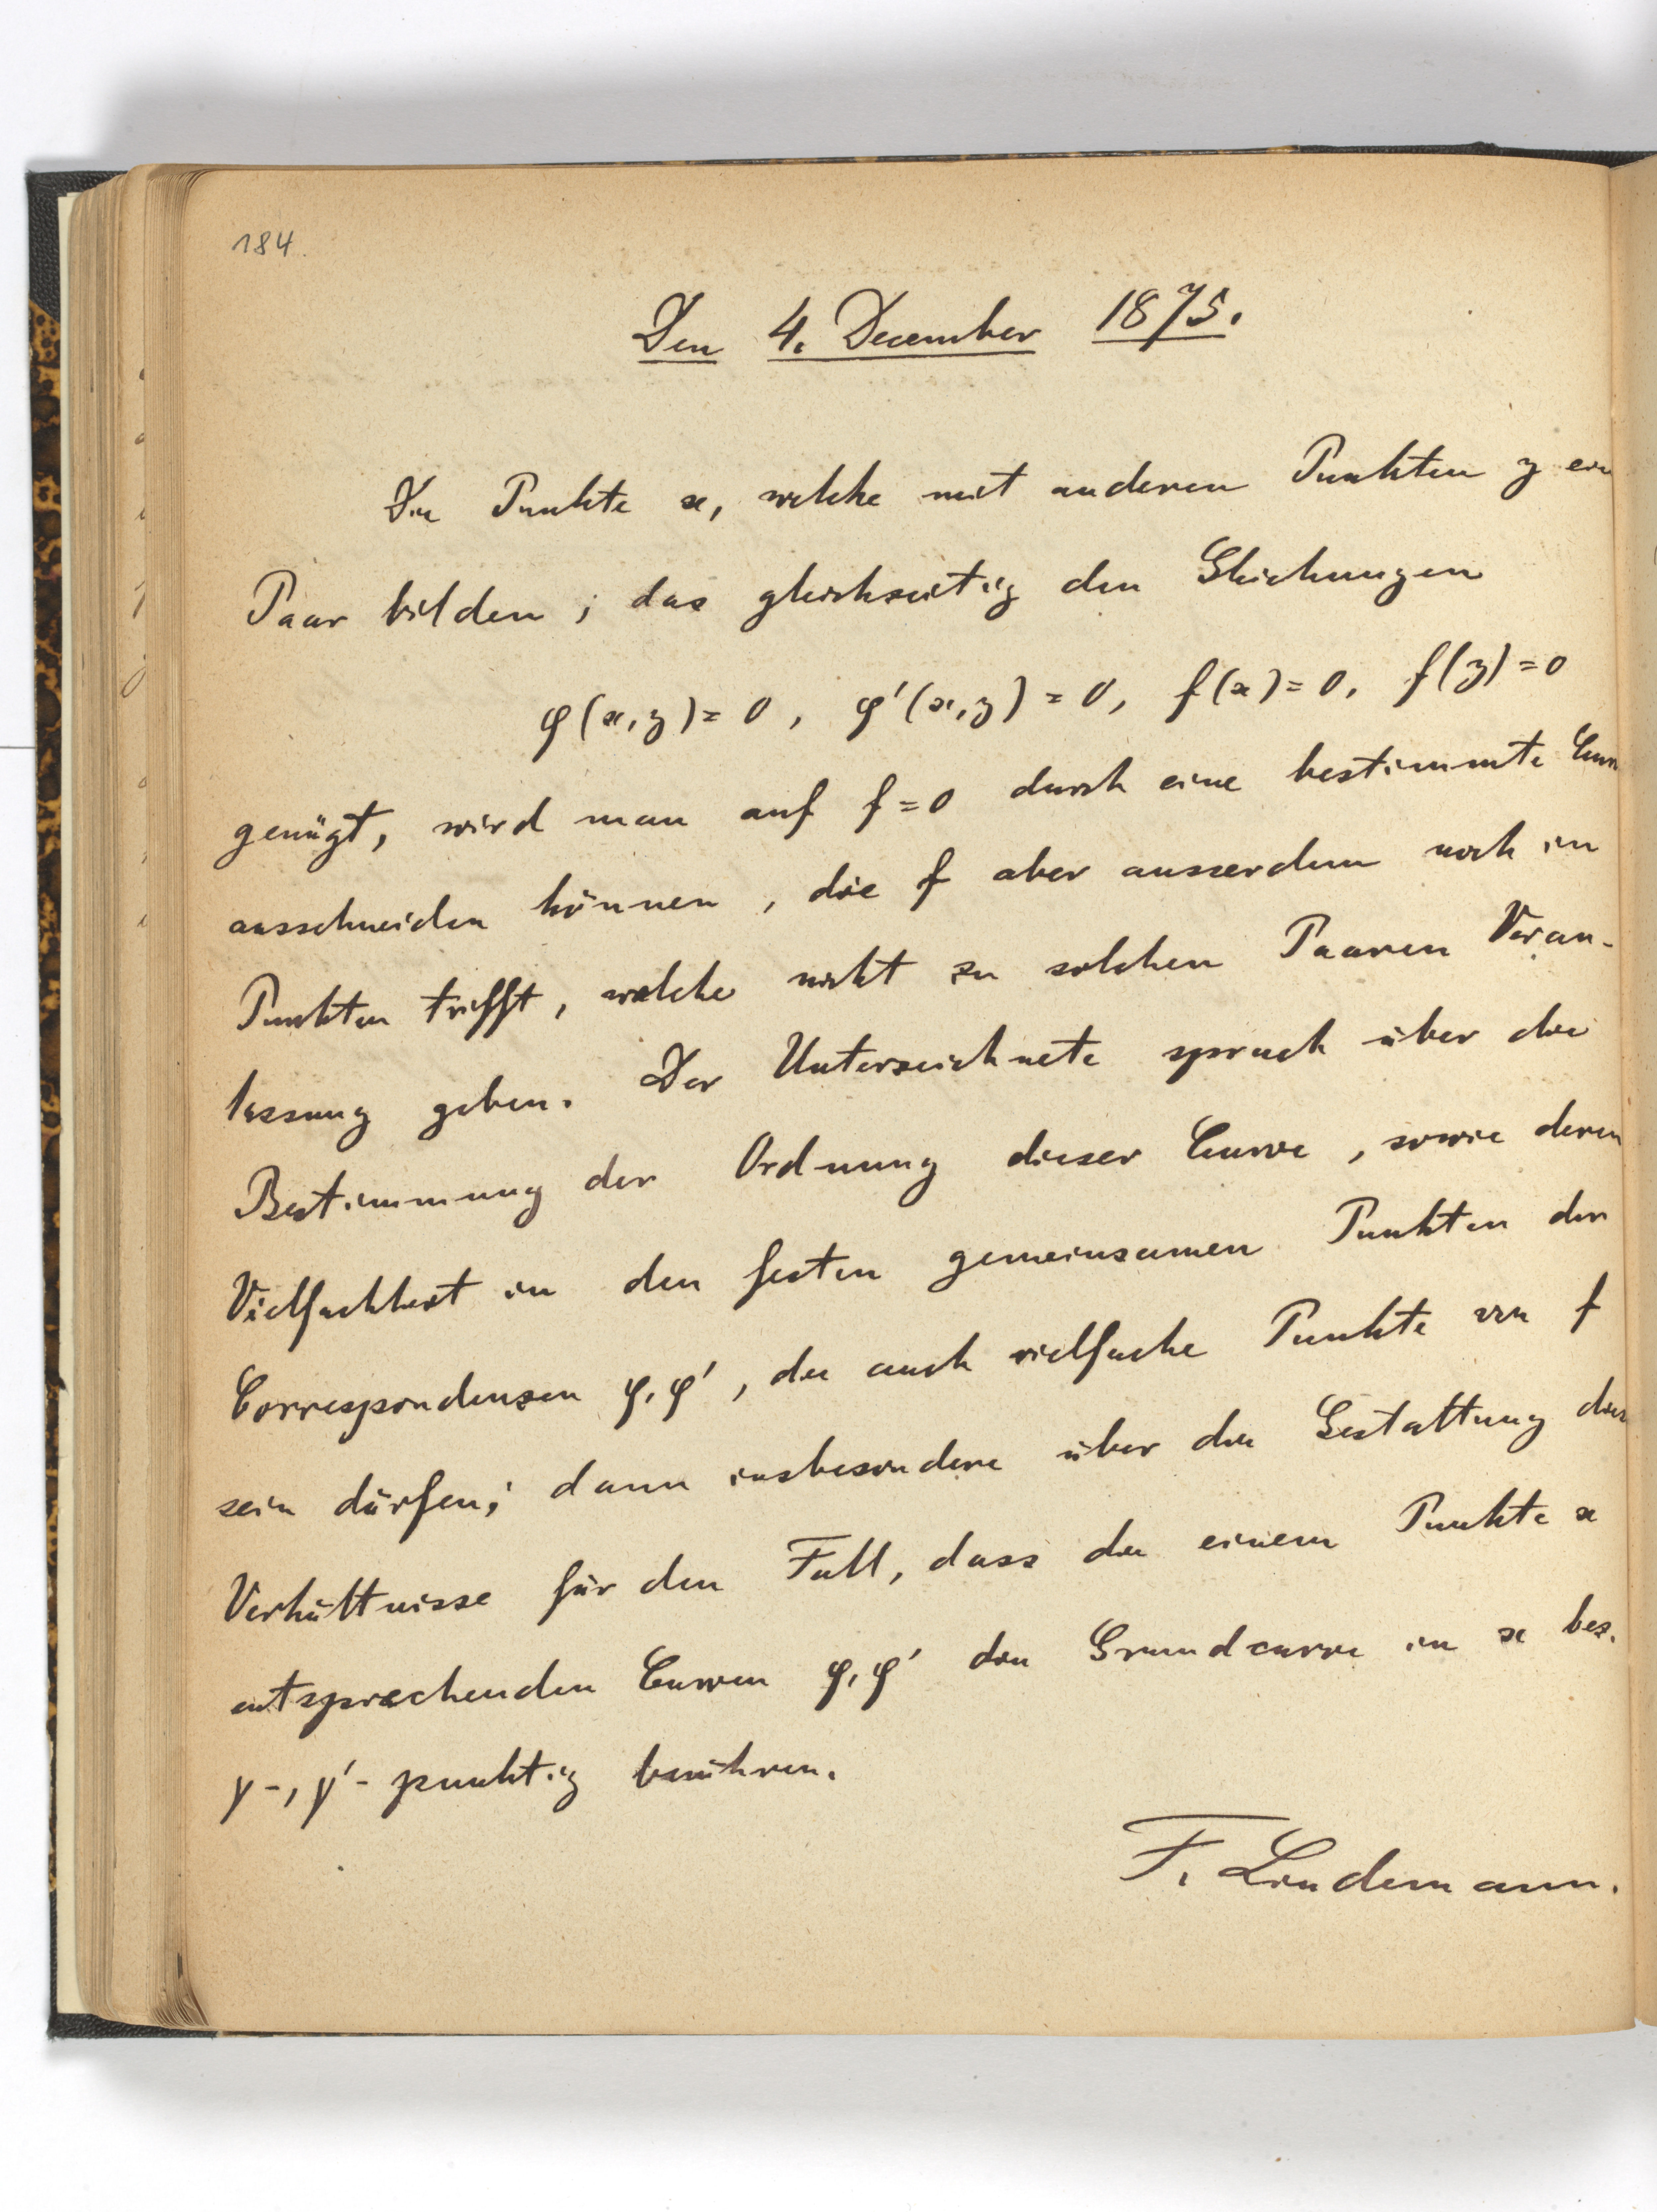 184
Den 4. December 1875.
Die Punkte x, welche mit anderen Punkten y ein
Paar bilden, das gleichzeitig den Gleichungen
φ(x,y)=0, φ'(x,y)=0, f(x)=0, f(y)=0
genügt, wird man auf f=0 durch eine bestimmte Curve
ausschneiden können, die f aber ausserdem noch in
Punkten trifft, welche nicht zu solchen Paaren Veran-
lassung geben. Der Unterzeichnete sprach über die
Bestimmung der Ordnung dieser Curve, sowie deren
Vielfachheit in den festen gemeinsamen Punkten der
Correspondenzen φ, φ', die auch vielfache Punkte von f
sein dürfen; dann insbesondere über die Gestaltung dieser
Verhältnisse für den Fall, dass die einem Punkte x
entsprechenden Curven φ, φ' die Grundcurve in x bez.
γ-, γ'- punktig berühren.
F. Lindemann.